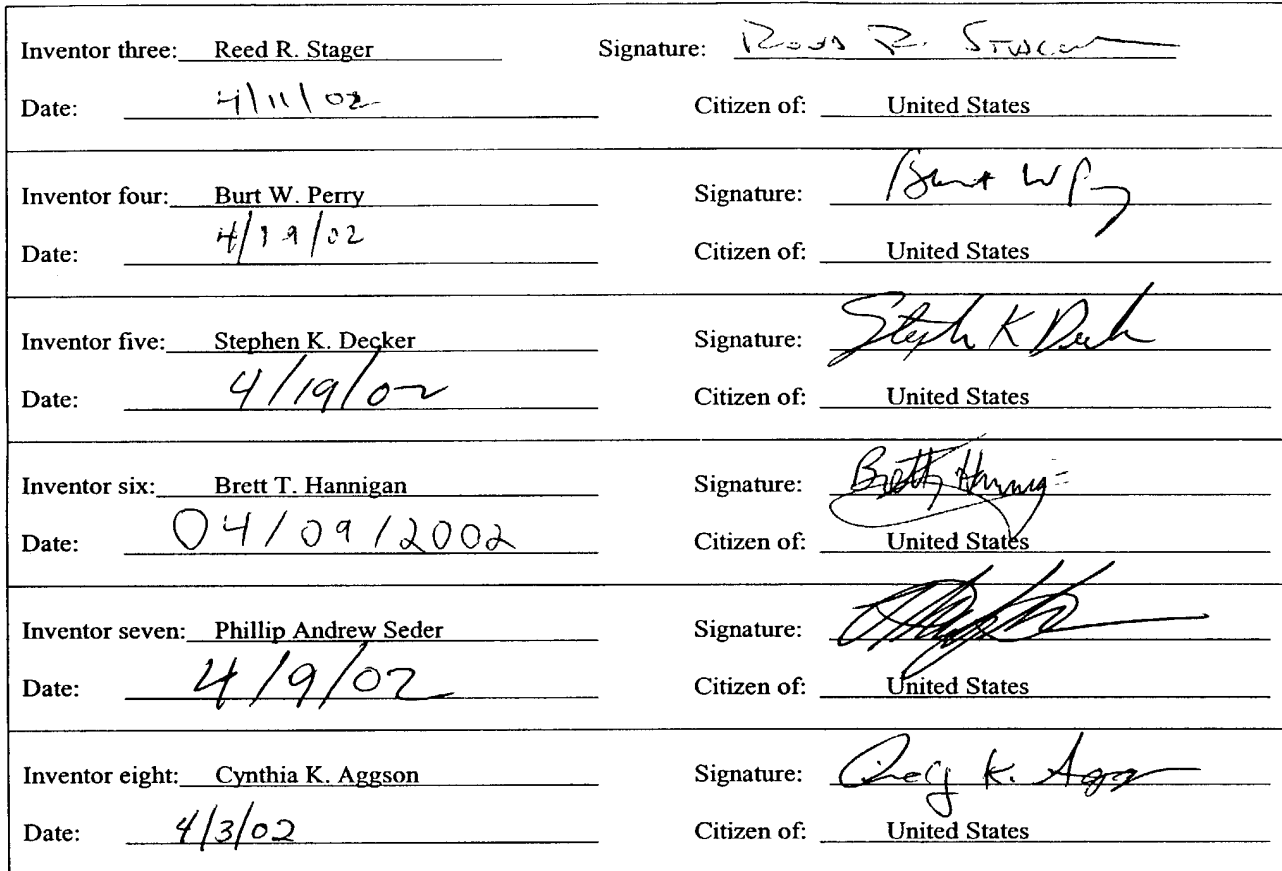 Inventor three: Reed R. Stager Signature:
Date: 4/11/02 Citizen of: United States
Inventor four: Burt W. Perry Signature: Burt W P
Date: 4/19/02 Citizen of: United States
Inventor five: Stephen K. Decker Signature: Steph K Deck
Date: 4/19/02 Citizen of: United States
Inventor six: Brett T. Hannigan Signature: Brett Hannig
Date: 04/09/2002 Citizen of: United States
Inventor seven: Phillip Andrew Seder Signature:
Date: 4/9/02 Citizen of: United States
Inventor eight: Cynthia K. Aggson Signature: K. Agg
Date: 4/3/02 Citizen of: United States